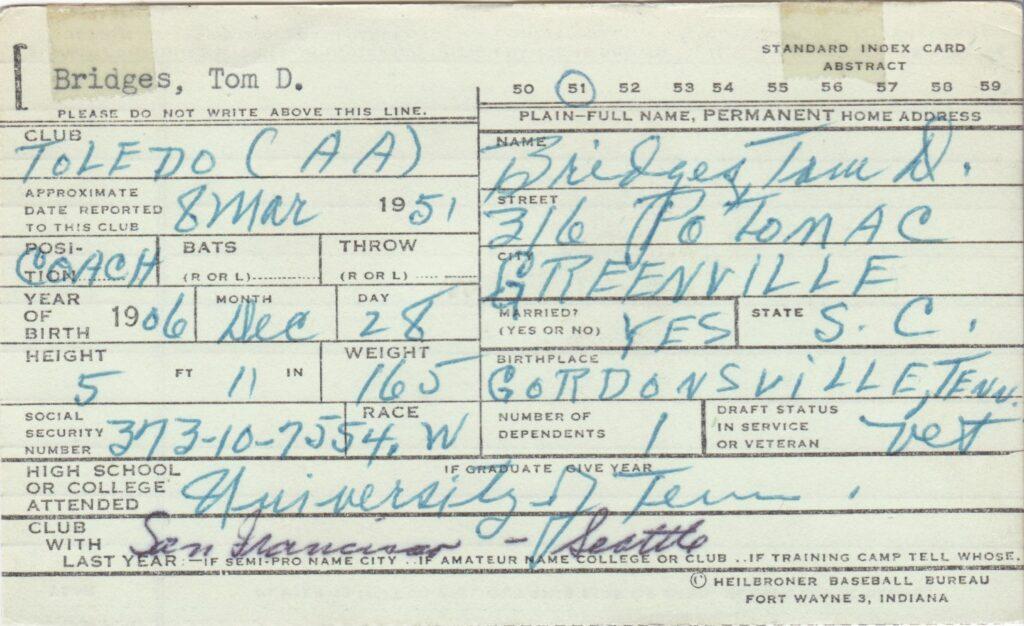 STANDARD INDEX CARD
ABSTRACT
Bridges, Tom D.
50 51 52 53 54 55 56 57 58 59
PLEASE DO NOT WRITE ABOVE THIS LINE.
PLAIN-FULL NAME, PERMANENT HOME ADDRESS
CLUB
TOLEDO (AA)
NAME
Bridges, Tom D.
APPROXIMATE
DATE REPORTED
TO THIS CLUB
8 Mar 1951
STREET
316 Potomac
POSI-
TION
COACH
BATS
(R OR L)
THROW
(R OR L)
CITY
GREENVILLE
YEAR
OF
BIRTH
1906
MONTH
Dec
DAY
28
MARRIED?
(YES OR NO)
YES
STATE
S. C.
HEIGHT
5 FT 11 IN
WEIGHT
165
BIRTHPLACE
GORDONSVILLE, TENN.
SOCIAL
SECURITY
NUMBER
373-10-7554,
RACE
W
NUMBER OF
DEPENDENTS
1
DRAFT STATUS
IN SERVICE
OR VETERAN
Vet
HIGH SCHOOL
OR COLLEGE
ATTENDED
IF GRADUATE GIVE YEAR
University of Tenn.
CLUB
WITH
San Francisco - Seattle
LAST YEAR:—IF SEMI-PRO NAME CITY ..IF AMATEUR NAME COLLEGE OR CLUB ..IF TRAINING CAMP TELL WHOSE.
© HEILBRONER BASEBALL BUREAU
FORT WAYNE 3, INDIANA